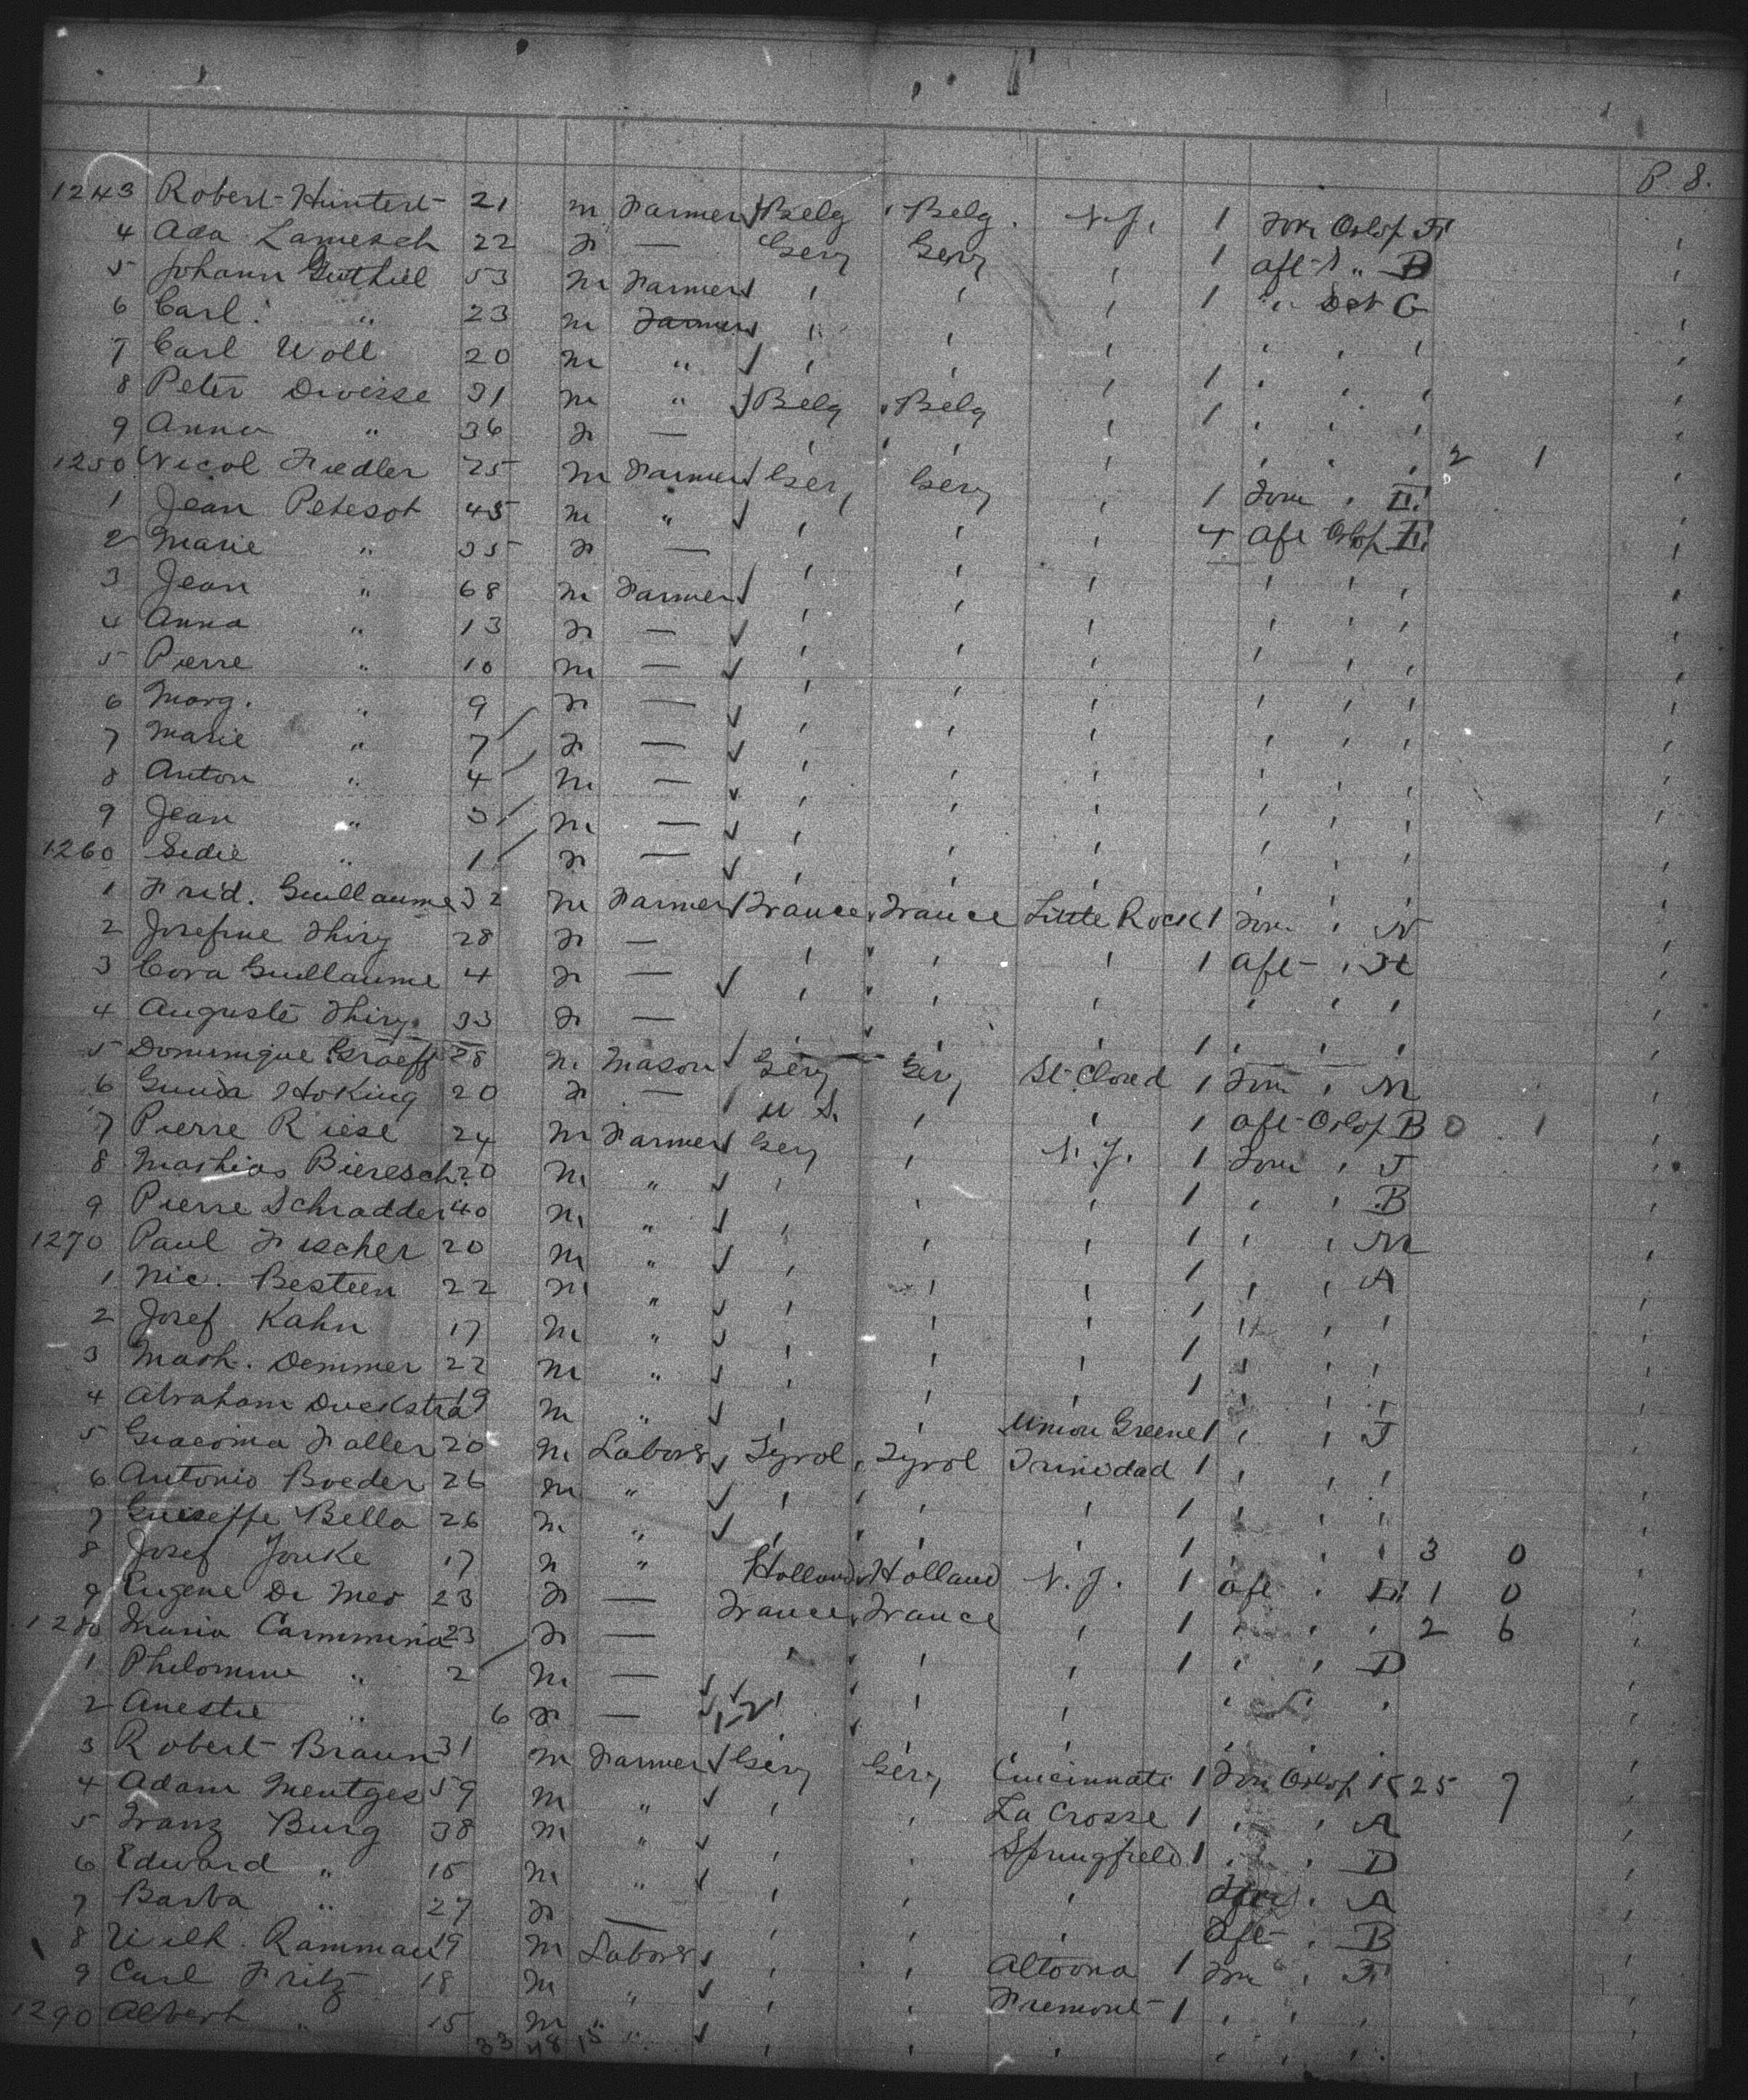 P. 8.
1243 Robert Huntert 21 m Farmer Belg Belg. N.J. 1 For Orlop F
4 Ada Lamesch 22 F — Gery Gery ' 1 aft " B
5 Johann Guthiel 53 m Farmer ' ' ' 1 " Det G
6 Carl " 23 m Farmer ' ' ' ' ' '
7 Carl Woll 20 m " ' ' ' 1 ' ' '
8 Peter Divisse 31 m " Belg Belg ' 1 ' ' '
9 Anna " 36 F — ' ' ' ' ' ' 2 1
1250 Nicol Fiedler 25 m Farmer Ger Gery ' 1 Fore '
1 Jean Petesot 45 m " ' ' ' 4 aft Orlop
2 Marie " 35 F — ' ' ' ' ' '
3 Jean " 68 m Farmer ' ' ' ' ' '
4 Anna " 13 F — ' ' ' ' ' '
5 Pierre " 10 m — ' ' ' ' ' '
6 Marg. " 9 F — ' ' ' ' ' '
7 Marie " 7 F — ' ' ' ' ' '
8 Anton " 4 m — ' ' ' ' ' '
9 Jean " 3 m — ' ' ' ' ' '
1260 Sidie " 1 F — ' ' ' ' ' '
1 Frid. Guillaume 32 m Farmer France France Little Rock 1 For ' N
2 Josefine Thiry 28 F — ' ' ' 1 aft ' H
3 Cora Guillaume 4 F — ' ' ' ' ' '
4 Auguste Thiry 33 F — ' 1 ' ' '
5 Dominique Graeff 28 m Mason Gery Gery St. Cloud 1 Fore ' M
6 Guida Hoking 20 F — U S. ' ' 1 aft Orlop B 0 1
7 Pierre Riese 24 m Farmer Gery ' N.J. 1 Fore ' J
8 Mathias Bieresch 20 m " ' ' ' 1 ' ' B
9 Pierre Schradder 40 m " ' ' ' 1 ' ' M
1270 Paul Fischer 20 m " ' ' ' 1 ' ' A
1 Nic. Besteen 22 m " ' ' ' 1 ' ' '
2 Josef Kahn 17 m " ' ' ' 1 ' ' '
3 Math. Demmer 22 m " ' ' ' 1 ' ' '
4 Abraham Duckstra 19 m " ' ' Union Greene 1 ' ' J
5 Giacoma Faller 20 m Labors Tyrol Tyrol Trinidad 1 ' ' '
6 Antonio Boeder 26 m " ' ' ' 1 ' ' '
7 Guiseffe Bella 26 m " ' ' ' 1 ' ' ' 3 0
8 Josef Jonke 17 " Holland Holland N.J. 1 aft ' 1 0
9 Eugene De Meo 23 F — France France ' 1 ' ' ' 2 6
1280 Maria Cammina 23 F — ' ' ' 1 ' ' D
1 Philomine " 2 m — ' ' ' ' '
2 Anestie " 6 F — ' ' ' ' '
3 Robert Braun 31 m Farmer Gery Gery Cincinnati 1 Fore Orlop K 25 7
4 Adam Mentges 59 m " ' ' La Crosse 1 ' ' A
5 Franz Burg 38 m " ' ' Springfield 1 ' ' D
6 Edward " 15 m " ' ' ' ' A
7 Barba " 27 F — ' ' ' Aft ' B
8 Wilh. Ramman 19 m Labors ' ' Altoona 1 Fore ' F
9 Carl Fritz 18 m " ' ' Fremont 1 ' ' '
1290 Albert " 15 m " ' ' ' ' ' '
33 48 15